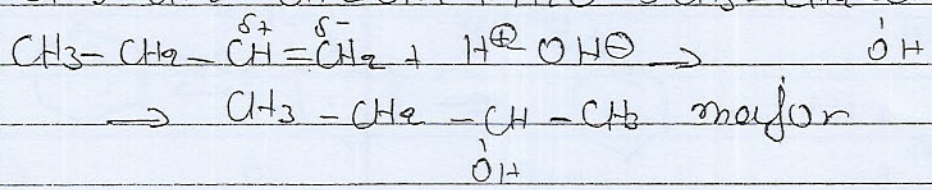 δ+ δ-
CH3 - CH2 - CH = CH2 + H⊕ OH⊖ →
OH
→ CH3 - CH2 - CH - CH3 major
OH